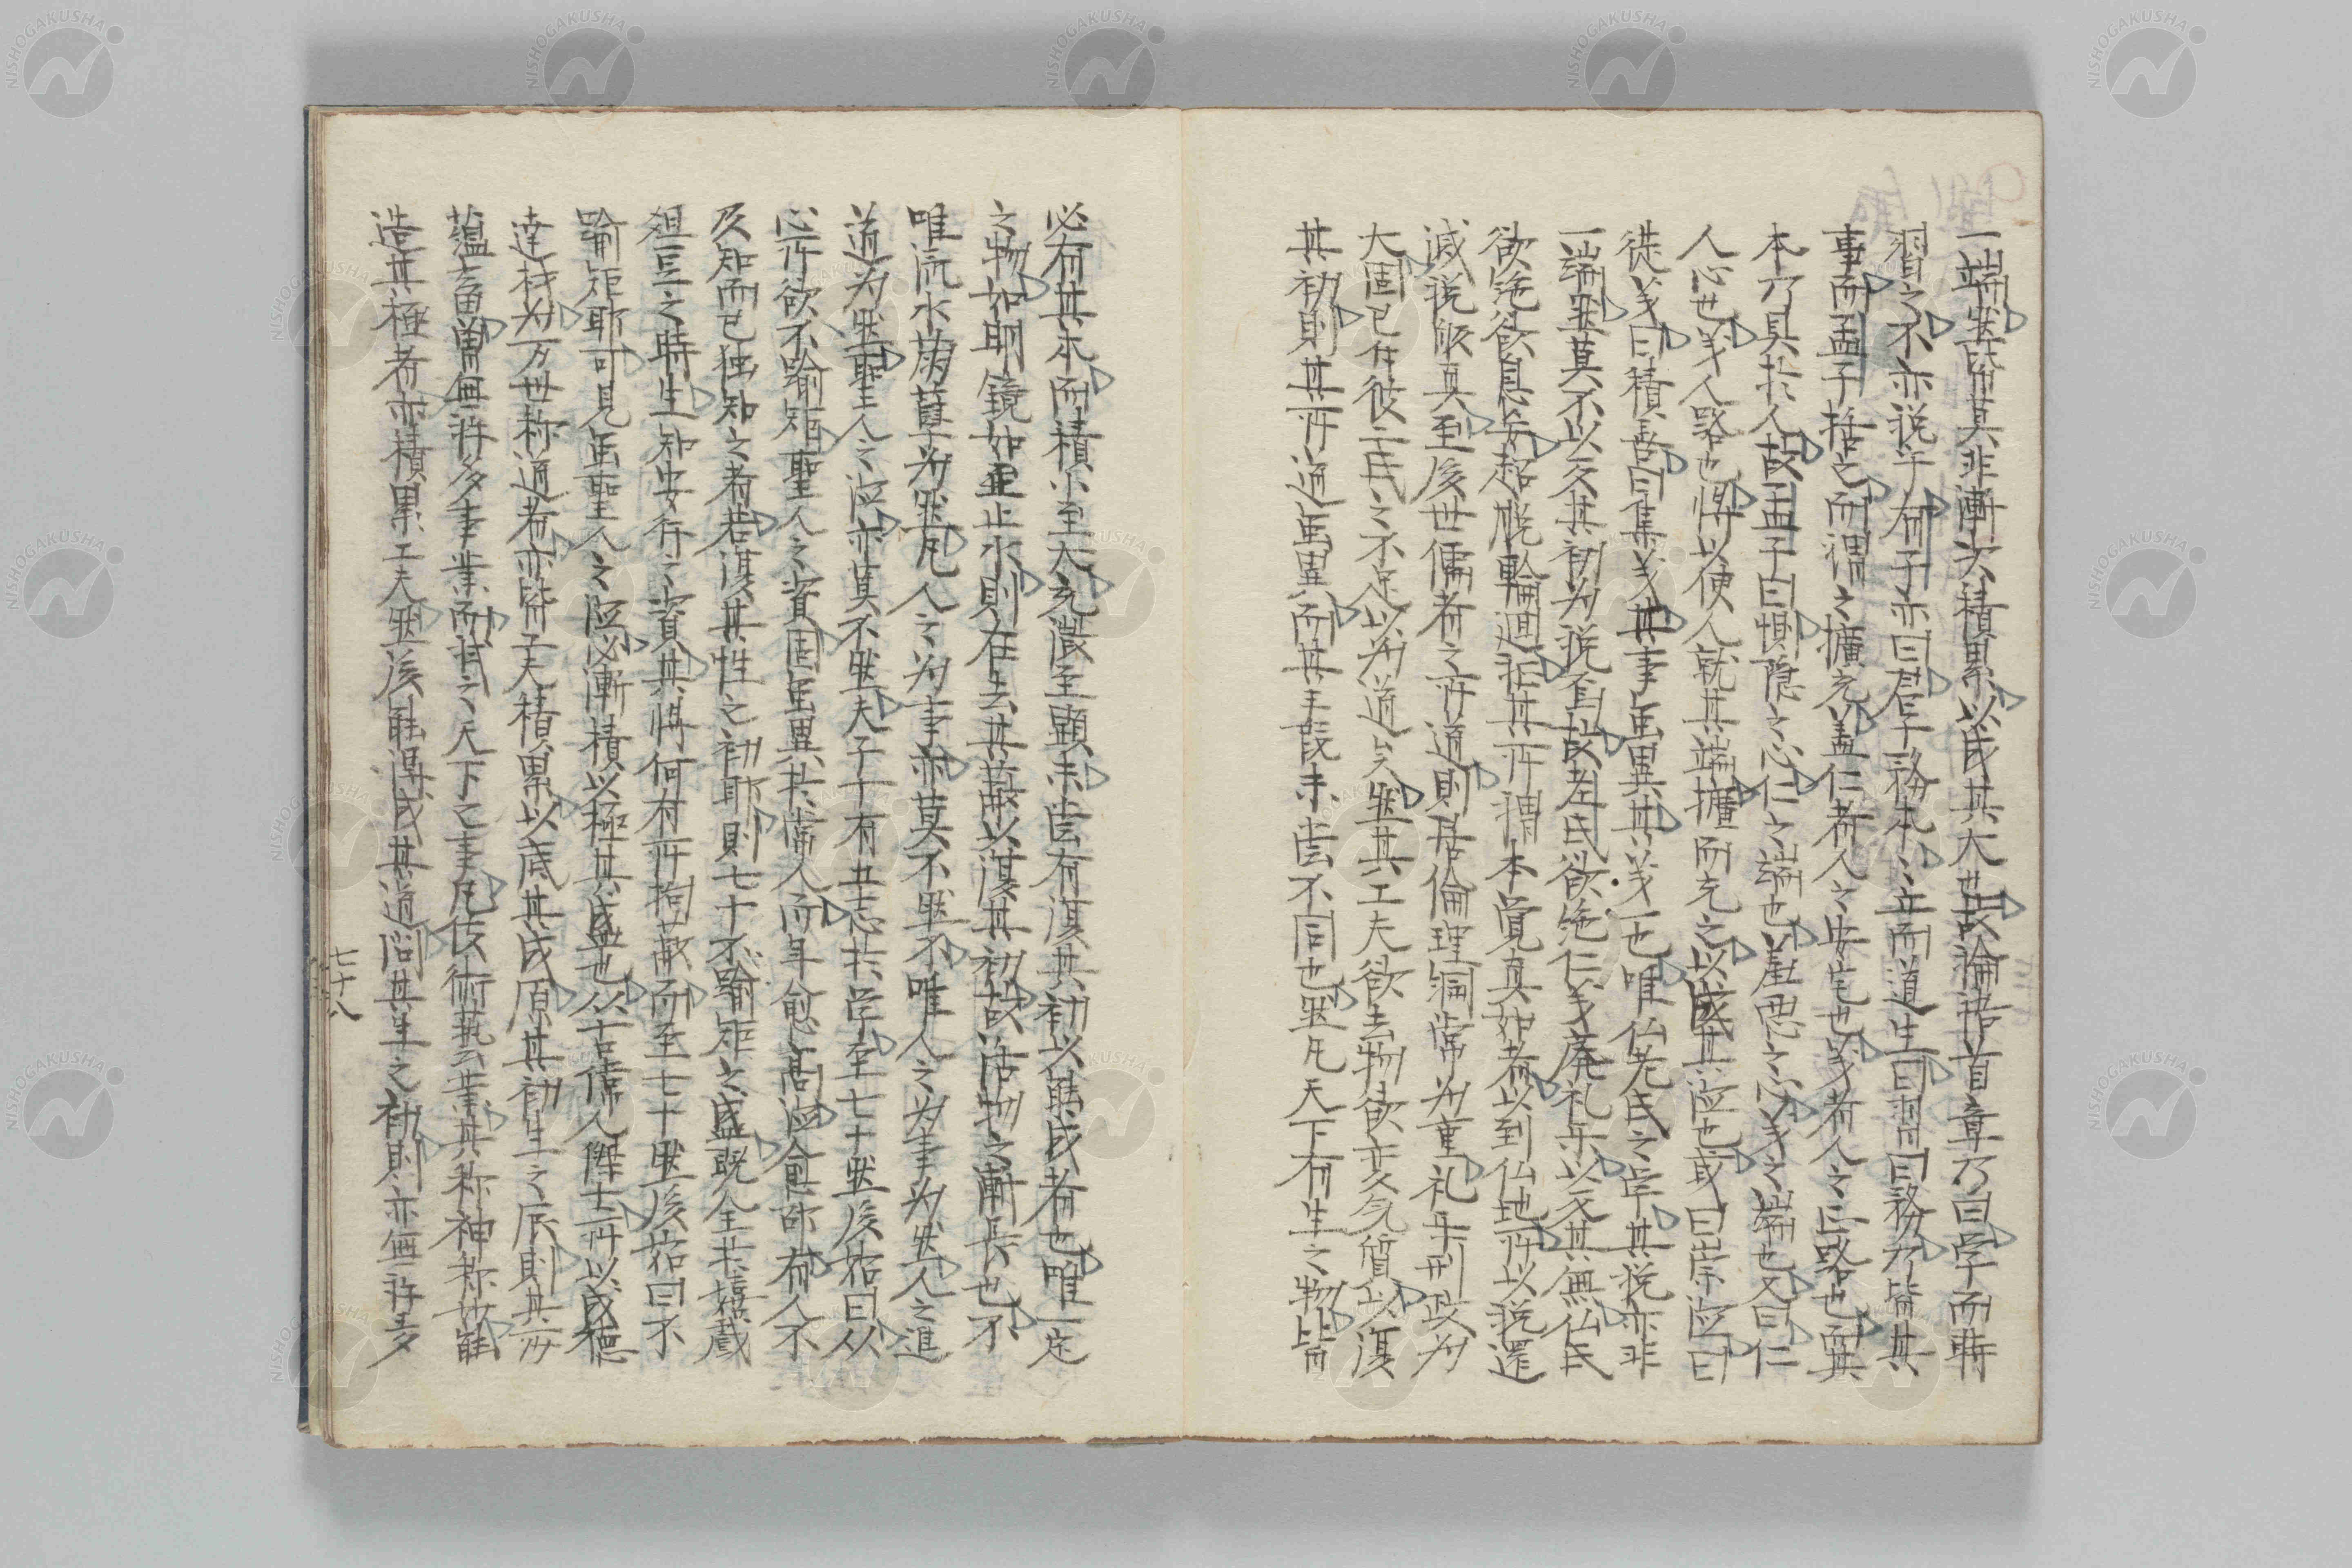 一端然皆莫非漸次積累以成其大也故論語首章乃曰学而時
習之不亦説乎有子亦曰君子務本〻立而道生曰習曰務乃皆其
事而孟子括之而謂之擴充蓋仁者人之安宅也義者人之正路也而其
本乃具於人故孟子曰惻隠之心仁之端也羞悪之心义之端也又曰仁
人心也义人路也将以使人就其端擴而充之以成其徳也或曰崇徳曰
徙义曰積善曰集义其事虽異其义一也唯仏老氏之学其説亦非
一端然莫不以反其初為説者故老氏欲絶仁义廃礼乐以反其無仏氏
欲絶欲息妄超脱輪廻非其所謂本覚真如者以到仏地所以説還
滅説皈真至後世儒者之所道則君倫理綱常為重礼乐刑政為
大固已伹彼二氏之不足以為道矣然其工夫欲去物欲变气質以復
其初則其所道虽異而其主張未尝不同也然凡天下有生之物皆
必有其本而積小至大充微至顕未尝有復其初以能成者也唯一定
之物如明鏡如止水則在去其蔽以復其初故活物之漸長也不
唯流水萠蘖為然凡人之為事亦莫不然不唯人之為事為然人之進
道為然聖人之徳亦莫不然夫子十有五志於学至七十然後始曰从
心所欲不踰矩聖人之資固虽異於常人而年愈高徳愈邵有人不
及知而己独知之者若復其性之初耶則七十不踰矩之盛既全於嬉戯
俎豆之時生知安行之資其将何有所拘蔽而至七十然後始曰不
踰矩耶可見虽聖人之徳必漸積以極其盛也从古偉人傑士所以成徳
達材為万世称道者亦皆工夫積累以底其成原其初生之辰則其所
蕴畜曽無許多事業而試之天下之事凡伎術藝業其称神称妙能
造其極者亦積累工夫然後能得成其道問其生之初則亦無許多
七十八
NISHOGAKUSHA